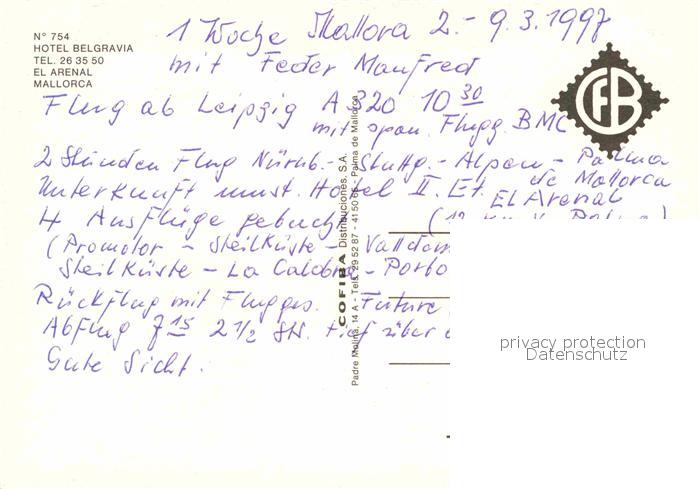 N° 754
HOTEL BELGRAVIA
TEL. 26 35 50
EL ARENAL
MALLORCA
1 Woche Mallora 2.-9.3.1997
mit Feder Manfred
Flug ab Leipzig A 320 10 30
mit span. Flugg. BMC
2 Stunden Flug Nürnb.- Stuttg.- Alpen - Palma
de Mallorca
Unterkunft unst. Hotel II. Et. EL Arenal
4 Ausflüge gebucht
(Promotor - Steilküste -
Steilküste - La Calobra -
Rückflug mit Flugges. Future
Abflug 7 15 2 1/2 Std. tief über
Gute Sicht.
COFIBA Distribuciones, S.A.
Padre Molina, 14 A - Tels. 29 52 87 - 41 50 66 - Palma de Mallorca
CFB
privacy protection
Datenschutz